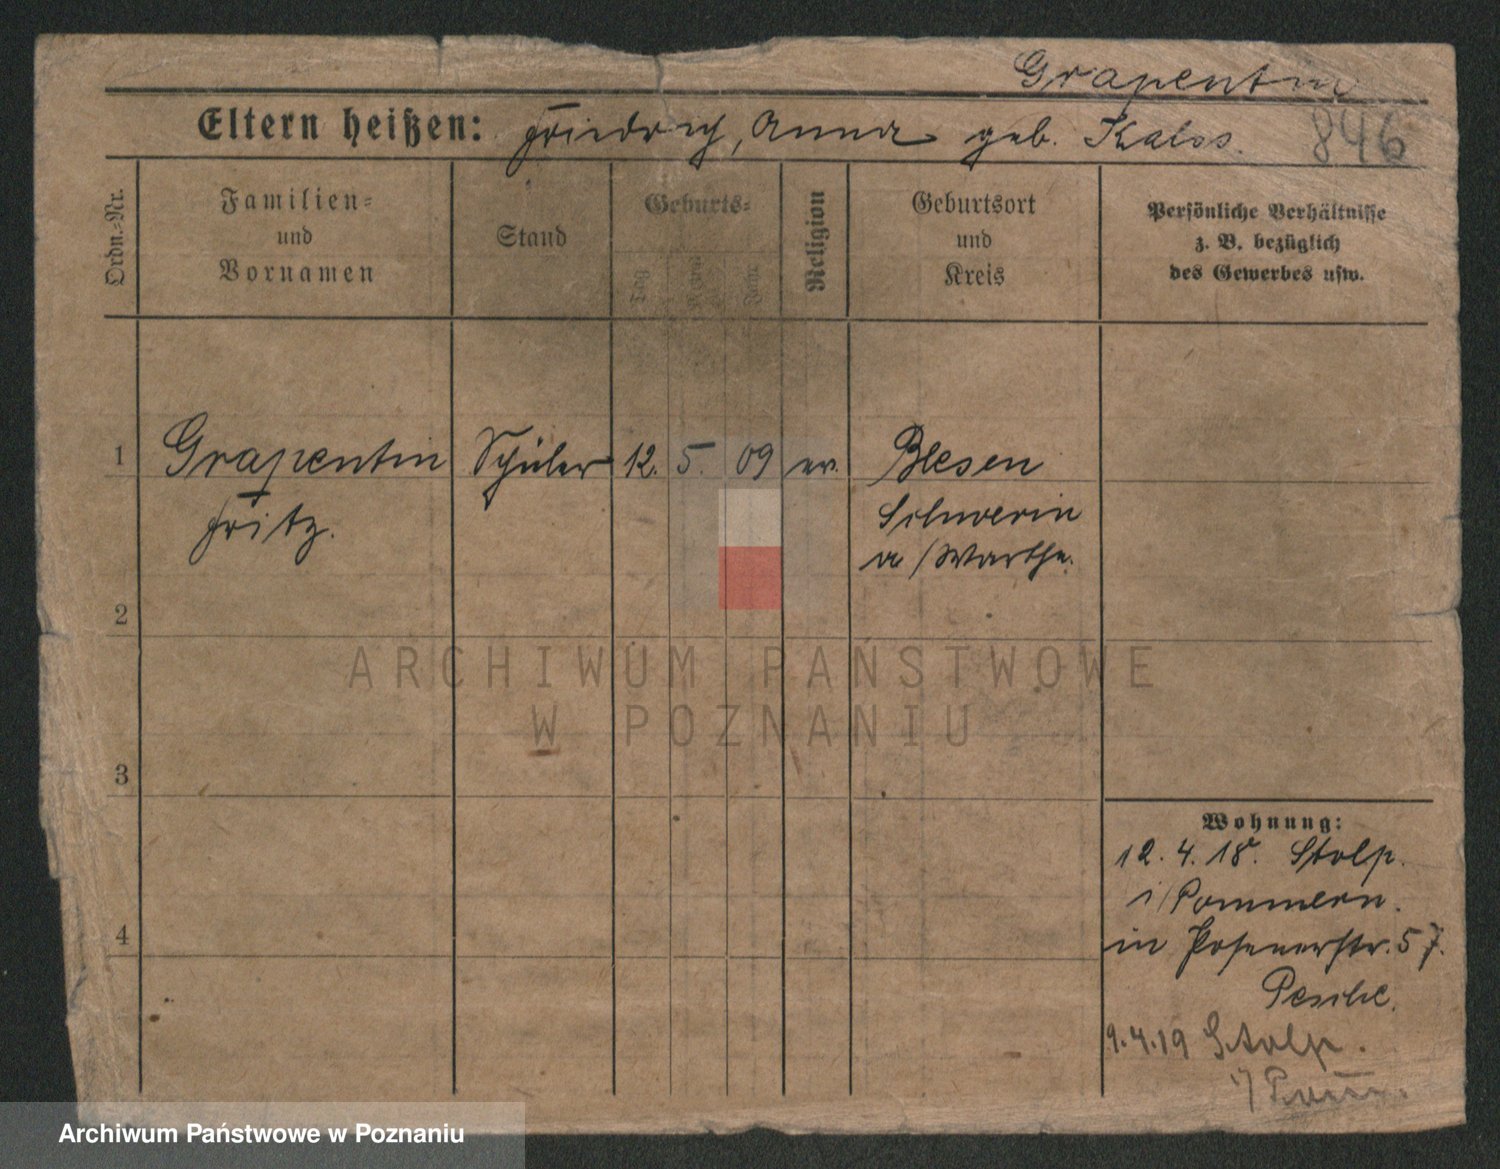 Grapentin
Eltern heißen: Friedrich, Anna geb. Kalss.
846
Ordn.-Nr.
Familien-
und
Vornamen
Stand
Geburts-
Tag
Monat
Jahr
Religion
Geburtsort
und
Kreis
Persönliche Verhältnisse
z. B. bezüglich
des Gewerbes usw.
1 Grapentin Schüler 12. 5. 09 ev. Blesen
Fritz.
Schwerin
a/Warthe.
2
3
4
ARCHIWUM PANSTWOWE
W POZNANIU
Wohnung:
12.4.18. Stolp.
i/Pommern.
in Posenerstr. 57.
Peschel.
9.4.19 Stolp.
i/Pom.
Archiwum Państwowe w Poznaniu